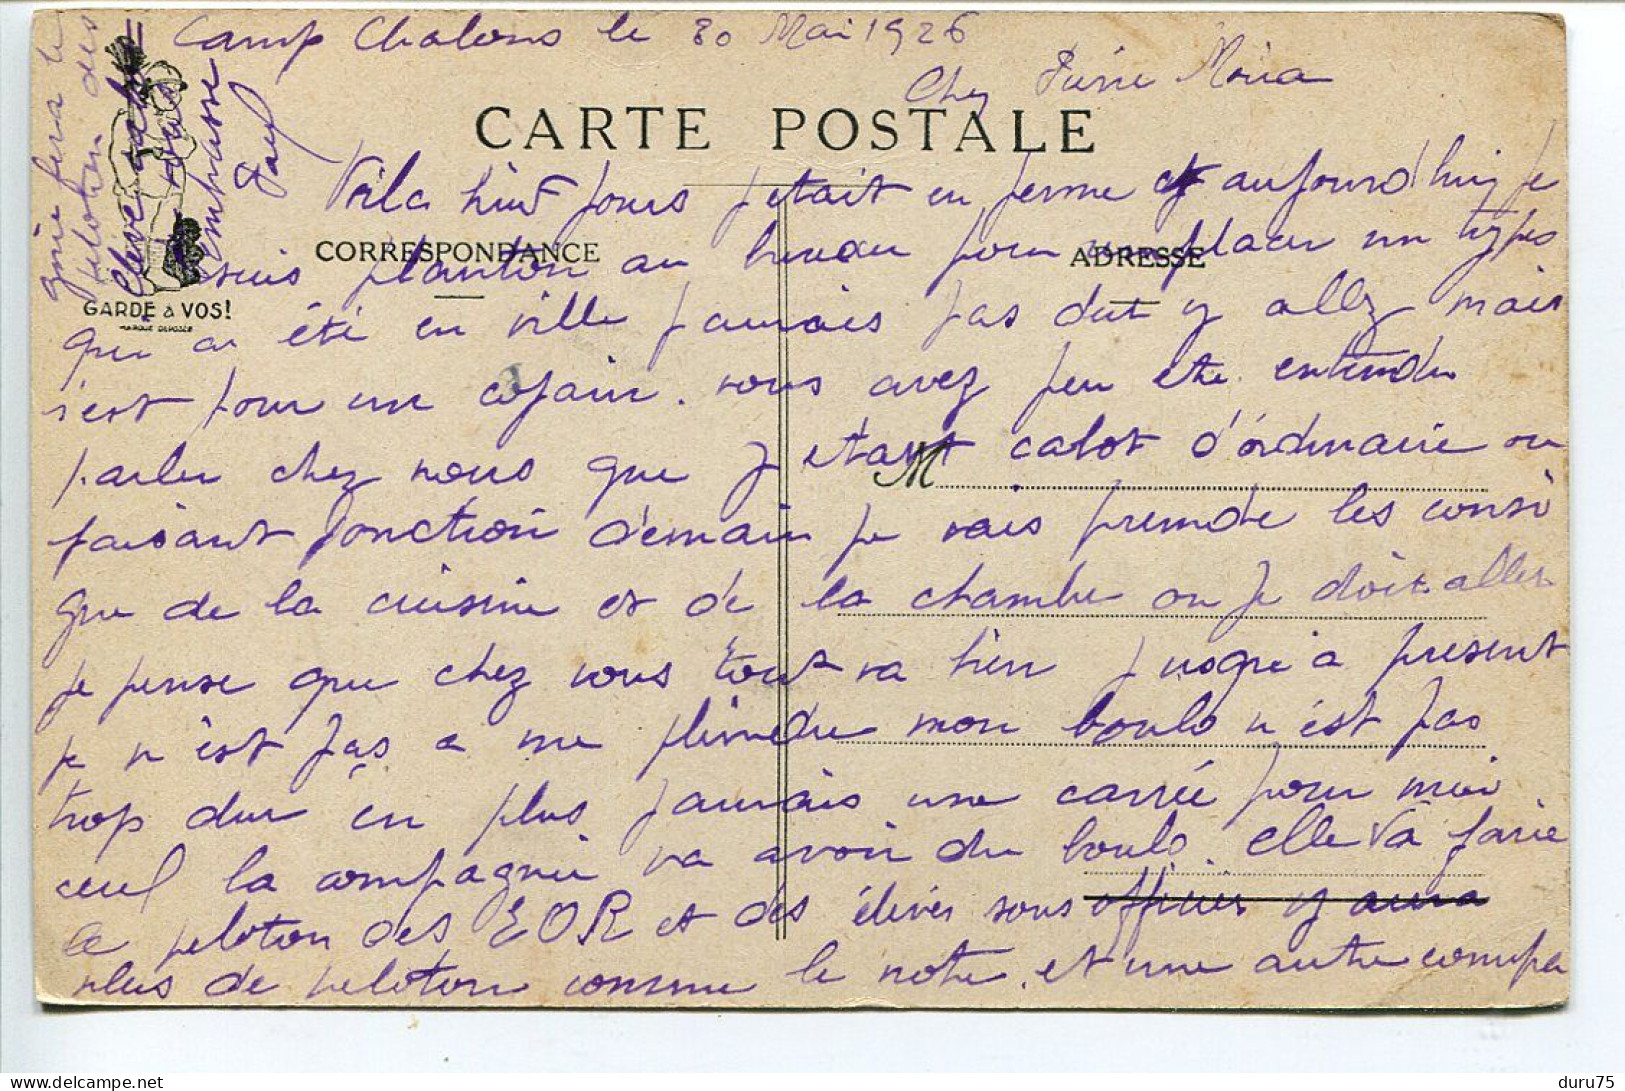 Camp Chalons le 30 Mai 1926
Chez
CARTE POSTALE
Voila huit jours j etait en ferme et aujourd hui je
CORRESPONDANCE
ADRESSE
suis planton au bureau pour remplacer un types
GARDE à VOS!
MARQUE DEPOSÉE
qui a été en ville jaurais pas dut y allez mais
s'est pour un copain. vous avez peu etre entendu
parler chez nous que j etait calot d'ordinaire ou
M
faisant fonction demain je vais prendre les consi
gne de la cuisine et de la chambre ou je dois aller
je pense que chez vous tout va bien jusque a present
je n'est pas a me pleindre mon boulo n'ést pas
trop dur en plus jaurais une carrée pour moi
ceul la compagnie va avoir du boulo. elle va faire
le peloton des EOR et des éléves sous officier y aura
plus de peloton comme le notre. et une autre compa
gnie fera le
peloton des
éléve
embrasse
Paul